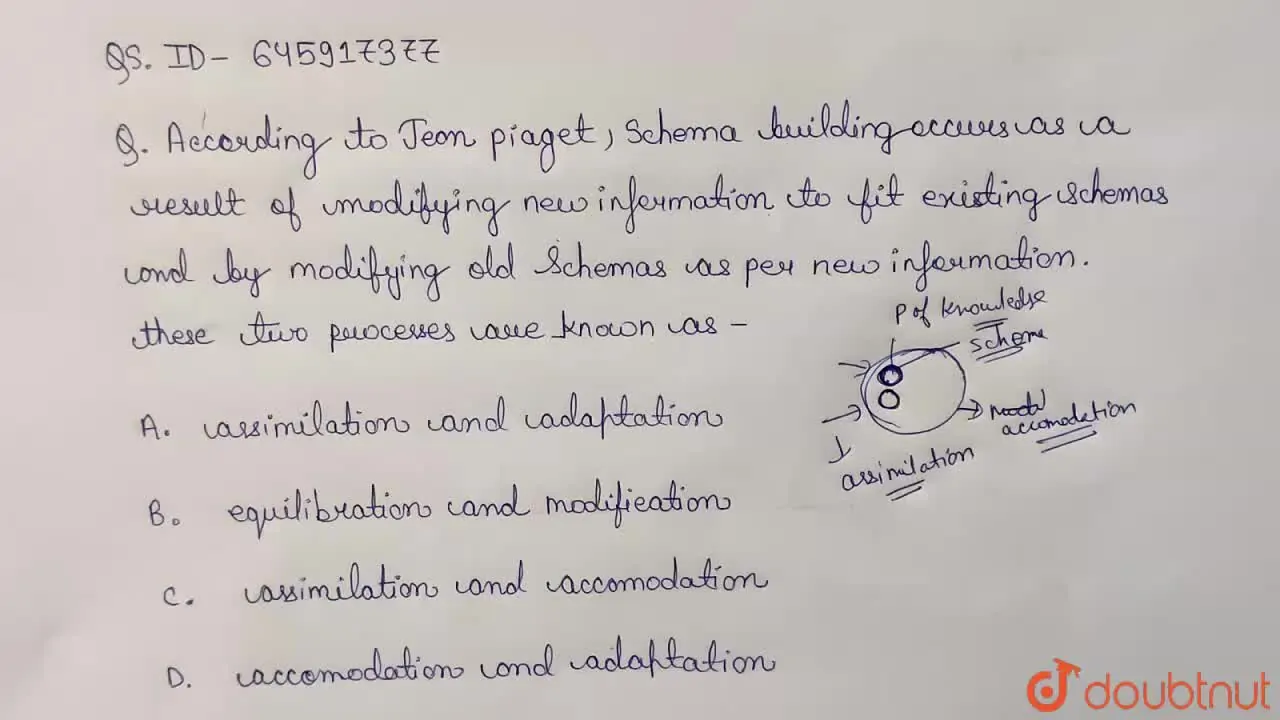 QS. ID- 645917377
Q. According to Jeon piaget, Schema building occurs as a
result of modifying new information to fit existing schemas
and by modifying old schemas as per new information.
these two processes are known as -
P of knowledge
scheme
accomodation
assimilation
A. assimilation and adaptation
B. equilibration and modification
C. assimilation and accomodation
D. accomodation and adaptation
doubtnut